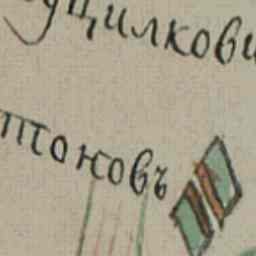 ущилкови
тоновъ